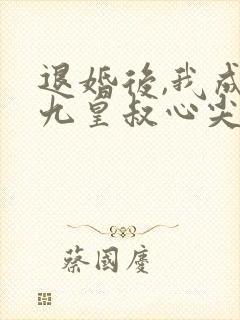 退婚後,我成
九皇叔心尖
蔡國慶